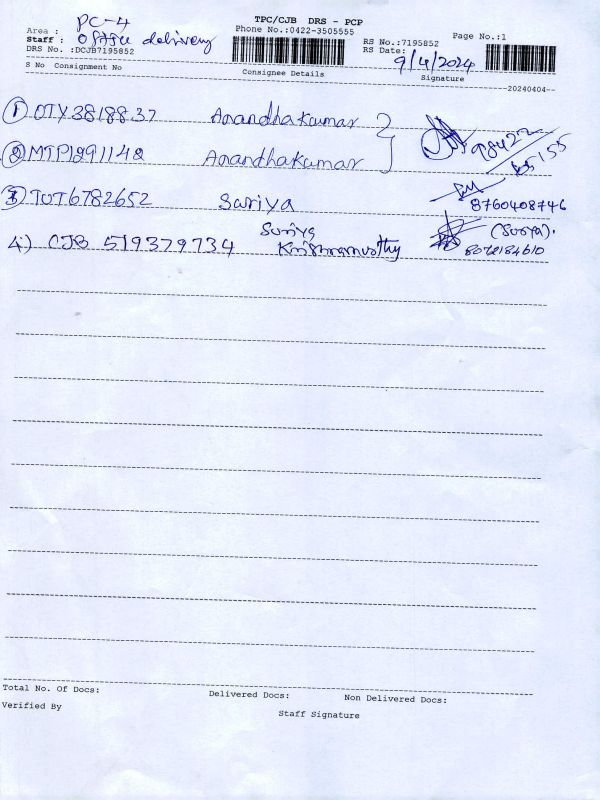 TPC/CJB DRS - PCP
Area : PC-4
Phone No.:0422-3505555
Page No.:1
Staff : Office delivery
RS No.:7195852
DRS No. :DCJB7195852
RS Date: 9/4/2024
S No Consignment No
Consignee Details
Signature
20240404
① OTY3818837 Anandhakumar
② MTP1291142 Anandhakumar
③ TUT6782652 Suriya 8760408746
4) CJB 519379734 Suriya Krishnamurthy (Surya).
Total No. Of Docs:
Delivered Docs:
Non Delivered Docs:
Verified By
Staff Signature